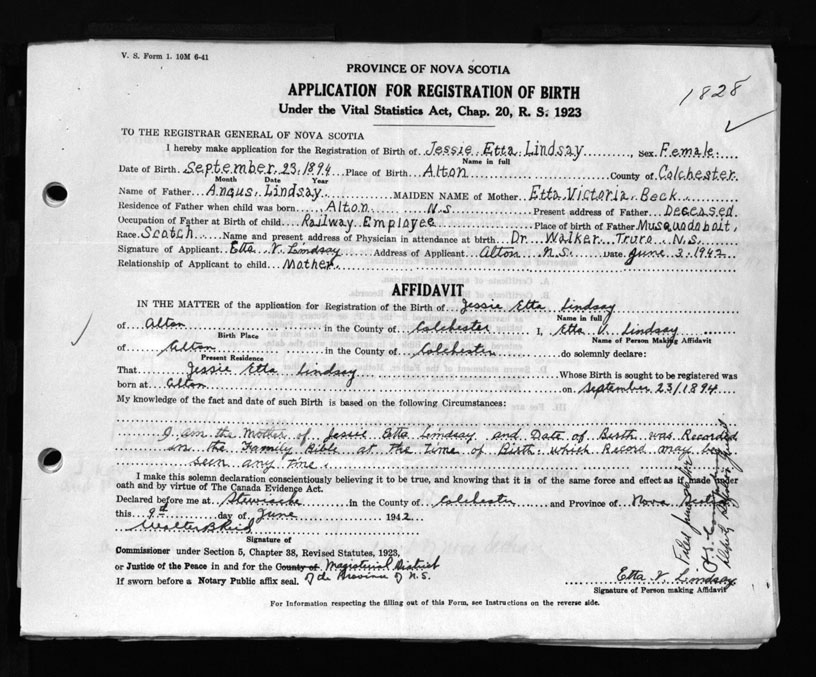 V. S. Form 1. 10M 6-41
PROVINCE OF NOVA SCOTIA
1828
APPLICATION FOR REGISTRATION OF BIRTH
Under the Vital Statistics Act, Chap. 20, R. S. 1923
TO THE REGISTRAR GENERAL OF NOVA SCOTIA
I hereby make application for the Registration of Birth of Jessie Etta Lindsay, Sex Female
Name in full
Date of Birth September 23, 1894 Place of Birth Alton County of Colchester
Month Date Year
Name of Father Angus Lindsay MAIDEN NAME of Mother Etta Victoria Beck
Residence of Father when child was born Alton N.S Present address of Father Deceased
Occupation of Father at Birth of child Railway Employee Place of birth of Father Musquodoboit,
Race Scotch Name and present address of Physician in attendance at birth Dr Walker Truro N.S.
Signature of Applicant Etta V. Lindsay Address of Applicant Alton N.S. Date June 3, 1942
Relationship of Applicant to child Mother
AFFIDAVIT
IN THE MATTER of the application for Registration of the Birth of Jessie Etta Lindsay
Name in full
of Alton in the County of Colchester I, Etta V. Lindsay
Birth Place Name of Person Making Affidavit
of Alton in the County of Colchester do solemnly declare:
Present Residence
That Jessie Etta Lindsay Whose Birth is sought to be registered was
born at Alton on September 23/1894
My knowledge of the fact and date of such Birth is based on the following Circumstances:
I am the Mother of Jessie Etta Lindsay and Date of Birth was Recorded
in the Family Bible at the time of Birth which Record may be
seen any time.
I make this solemn declaration conscientiously believing it to be true, and knowing that it is of the same force and effect as if made under
oath and by virtue of The Canada Evidence Act.
Declared before me at Stewiacke in the County of Colchester and Province of Nova Scotia
this 9th day of June 1942
Walter B Reid
Signature of
Commissioner under Section 5, Chapter 38, Revised Statutes, 1923,
or Justice of the Peace in and for the County of Magisterial District
If sworn before a Notary Public affix seal. of the Province of N.S.
Etta V. Lindsay
Signature of Person making Affidavit
For Information respecting the filling out of this Form, see Instructions on the reverse side.